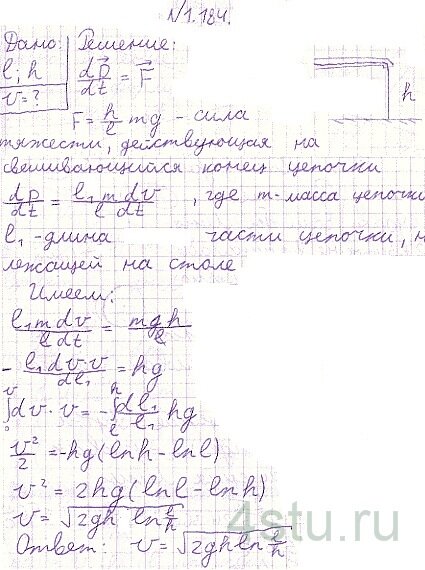 N 1.184.
Дано: Решение:
l; h
v = ?
dp⃗/dt = F⃗
F = h/l mg - сила
тяжести, действующая на
свешивающийся конец цепочки
h
dp/dt = l₁mdv/ldt , где m-масса цепочки
l₁ - длина части цепочки, н
лежащей на столе
Имеем:
l₁mdv/ldt = mgh/l
- l₁dv·v/dl₁ = hg
∫₀ᵛ dv·v = -∫ₗʰ dl₁/l₁ hg
v²/2 = -hg(lnh - lnl)
v² = 2hg(lnl - lnh)
v = √(2gh ln l/h)
Ответ: v = √(2gh ln l/h)
4stu.ru